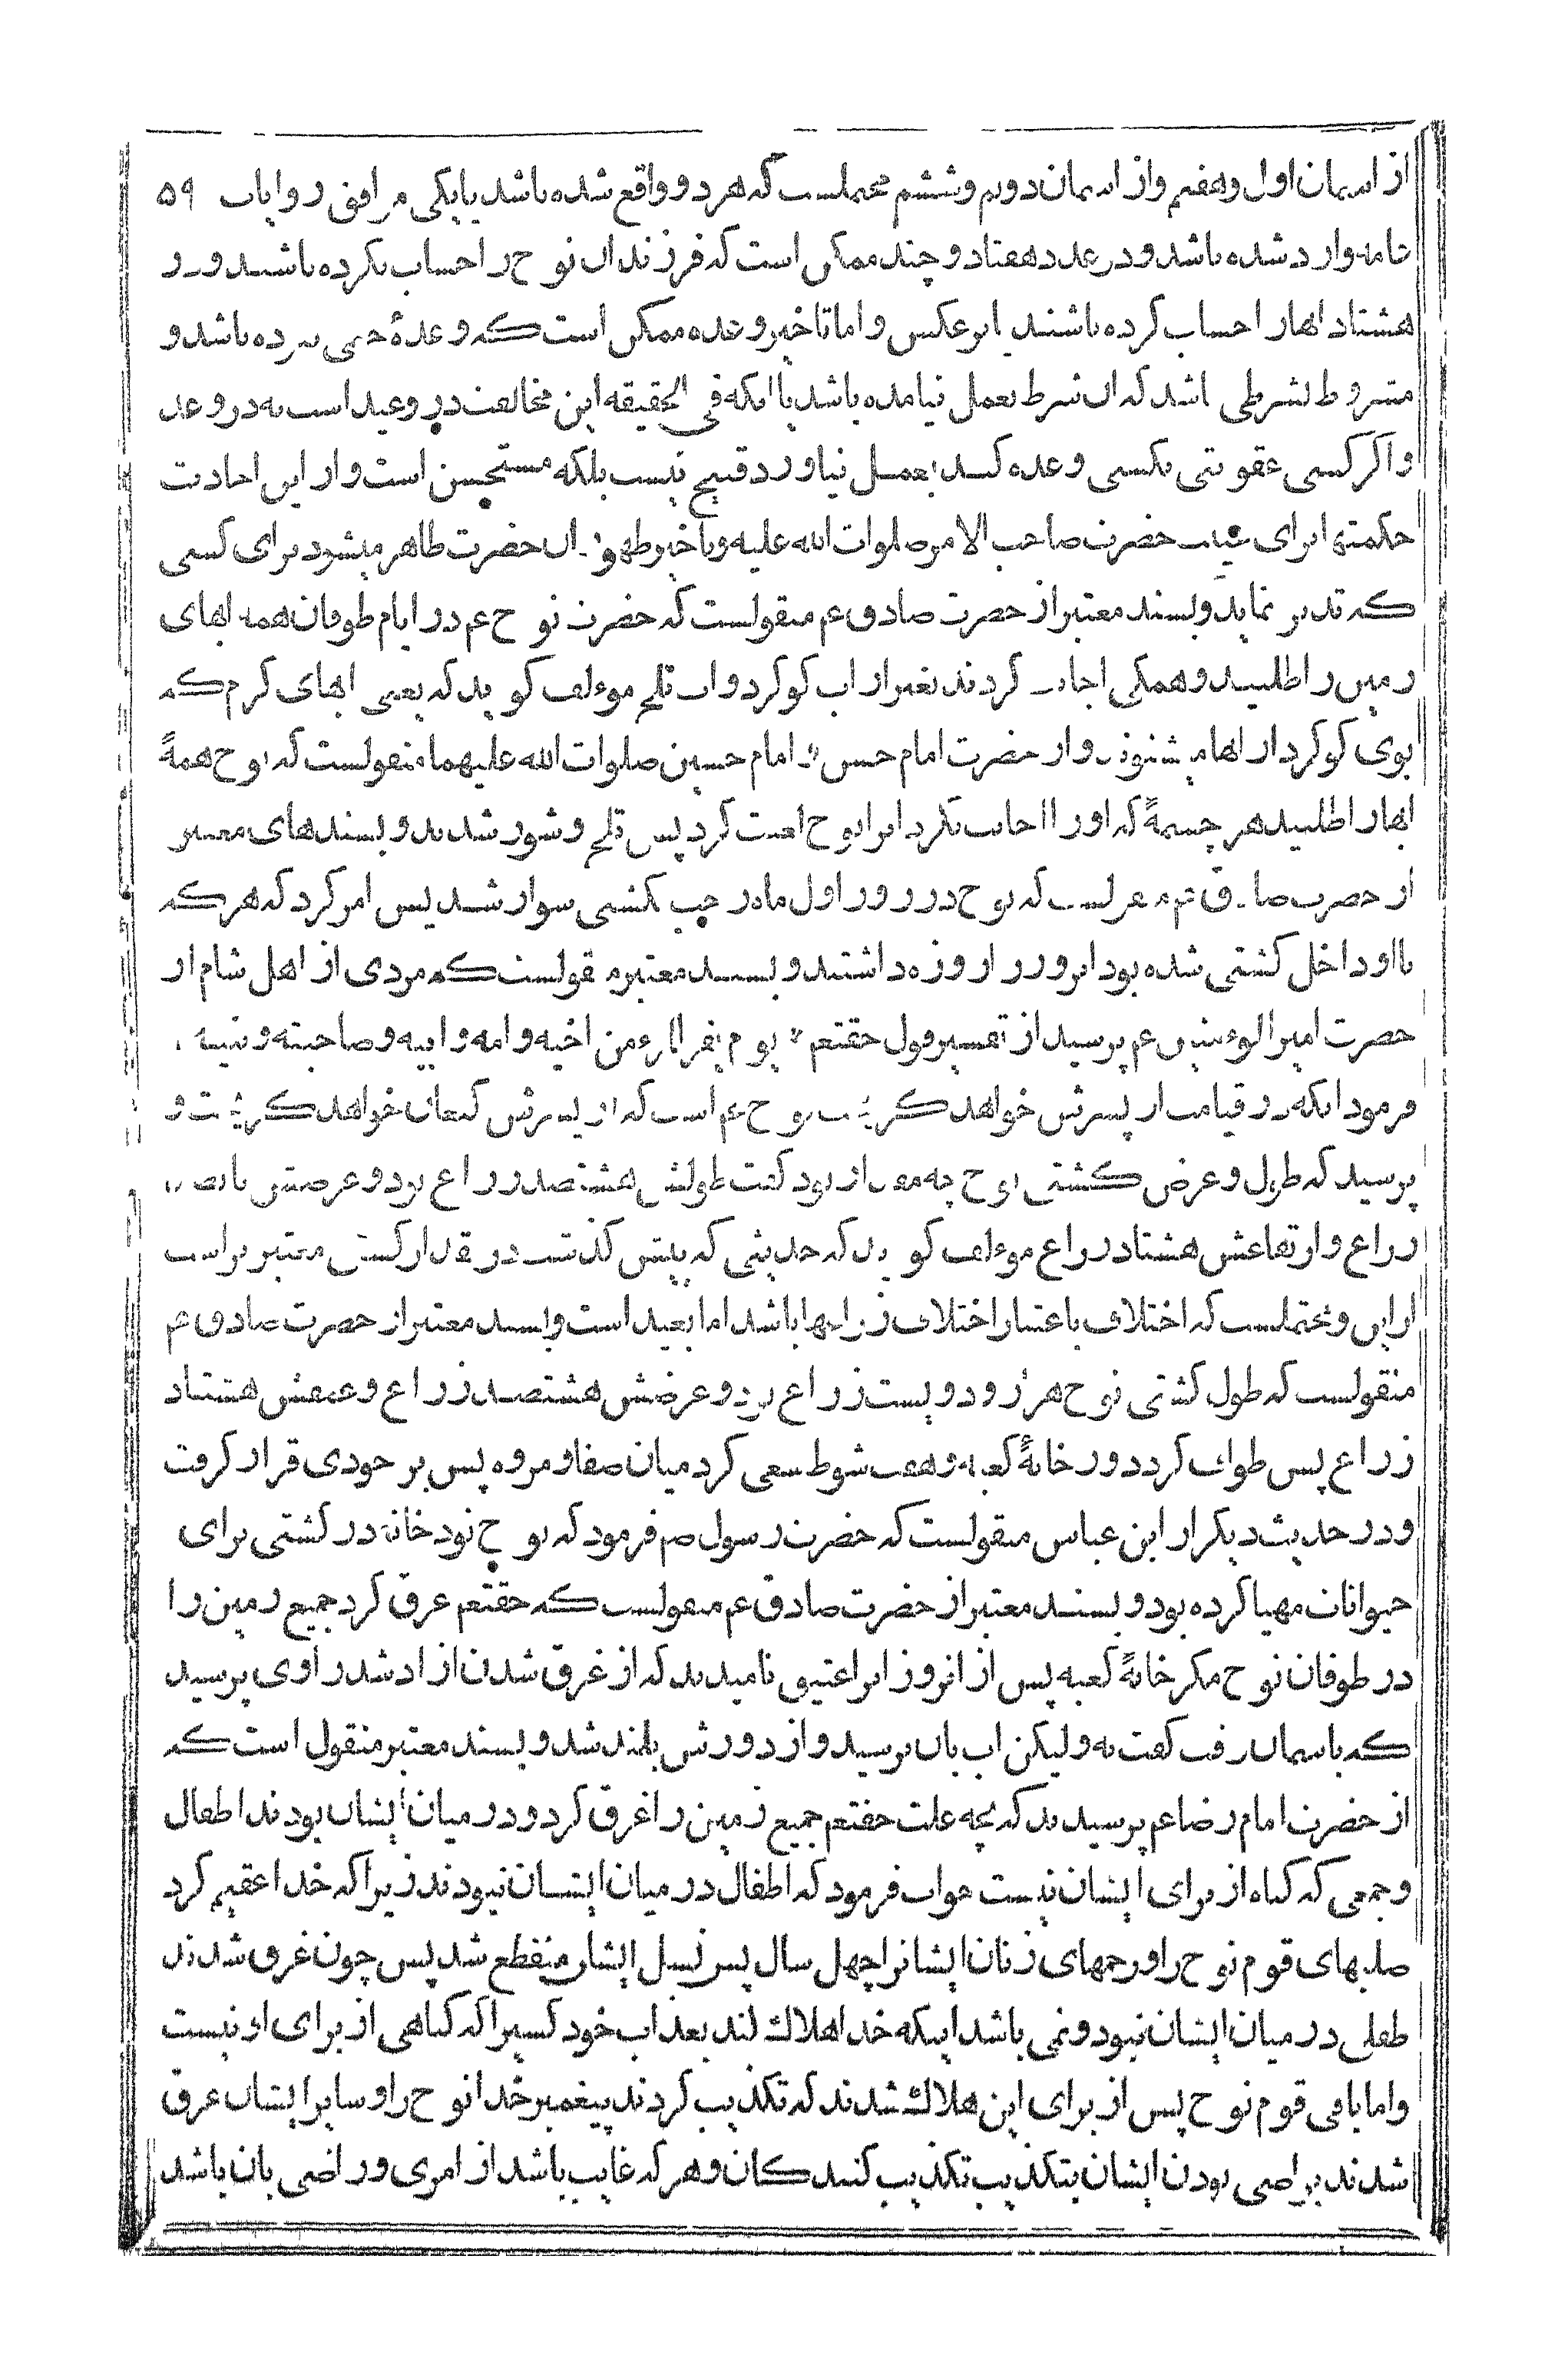 از اسمان اول و هفتم و از اسمان دویم و ششم محتملست که هر دو واقع شده باشد یا یکی موافق روایات ۵۹
عامه وارد شده باشد و در عدد هفتاد و چند ممکن است که فرزندان نوح را حساب نکرده باشند و در
هشتاد انها را حساب کرده باشند یا برعکس و اما تاخیر وعده ممکن است که وعدهٔ حتمی نبرده باشد و
مشروط بشرطی باشد که ان شرط بعمل نیامده باشد یا انکه فی الحقیقه این مخالفت در وعید است نه در وعد
و اکر کسی عقوبتی بکسی وعده کند بعمل نیاورد قبیح نیست بلکه مستحسن است و از این احادیث
حکمتها برای غیبت حضرت صاحب الامر صلوات الله علیه و تاخیر ظهور ان حضرت ظاهر میشود برای کسی
که تدبر نماید و بسند معتبر از حضرت صادق عم منقولست که حضرت نوح عم در ایام طوفان همه ابهای
زمین را طلبید و همکی اجابت کردند بغیر از اب کوکرد و اب تلخ موءلف کوید که یعنی ابهای کرم که
بوی کوکرد از انها میشنوند و از حضرت امام حسن و امام حسین صلوات الله علیهما منقولست که نوح همهٔ
ابها را طلبید هر چشمهٔ که او را اجابت نکرد انرا نوح لعنت کرد پس تلخ و شور شدند و بسندهای معتبر
از حضرت صادق عم منقولست که نوح در روز اول ماه رجب بکشتی سوار شد پس امر کرد که هر که
با او داخل کشتی شده بود انروز را روزه داشتند و بسند معتبر منقولست که مردی از اهل شام از
حضرت امیر الموءمنین عم پرسید از تفسیر قول حقتعم * یوم یفر المرء من اخیه و امه و ابیه و صاحبته و بنیه
فرمود انکه در قیامت از پسرش خواهد کریخت نوح عم است که از پسرش کنعان خواهد کریخت و
پرسید که طول و عرض کشتی نوح چه مقدار بود کفت طولش هشتصد زراع بود و عرضش پانصد
زراع و ارتفاعش هشتاد زراع موءلف کوید که حدیثی که پیش کذشت در مقدار کشتی معتبر تر است
از این و محتملست که اختلاف باعتبار اختلاف زراعها باشد اما بعید است و بسند معتبر از حضرت صادق عم
منقولست که طول کشتی نوح هزار و دویست زراع بود و عرضش هشتصد زراع و عمقش هشتاد
زراع پس طواف کرد دور خانهٔ کعبه و هفت شوط سعی کرد میان صفا و مروه پس بر جودی قرار کرفت
و در حدیث دیکر از ابن عباس منقولست که حضرت رسول صم فرمود که نوح نود خانه در کشتی برای
حیوانات مهیا کرده بود و بسند معتبر از حضرت صادق عم منقولست که حقتعم غرق کرد جمیع زمین را
در طوفان نوح مکر خانهٔ کعبه پس از انروز انرا عتیق نامیدند که از غرق شدن ازاد شد راوی پرسید
که باسمان رفت کفت نه ولیکن اب بان نرسید و از دورش بلند شد و بسند معتبر منقول است که
از حضرت امام رضا عم پرسیدند که بچه علت حقتعم جمیع زمین را غرق کرد و در میان ایشان بودند اطفال
و جمعی که کناه از برای ایشان نیست جواب فرمود که اطفال در میان ایشان نبودند زیرا که خدا عقیم کرد
صلبهای قوم نوح را و رحمهای زنان ایشانرا چهل سال پس نسل ایشان منقطع شد پس چون غرق شدند
طفلی در میان ایشان نبود و نمی باشد اینکه خدا هلاک کند بعذاب خود کسیرا که کناهی از برای او نیست
و اما باقی قوم نوح پس از برای این هلاک شدند که تکذیب کردند پیغمبر خدا نوح را و سایر ایشان غرق
شدند براضی بودن ایشان بتکذیب تکذیب کنندکان و هر که غایب باشد از امری و راضی بان باشد